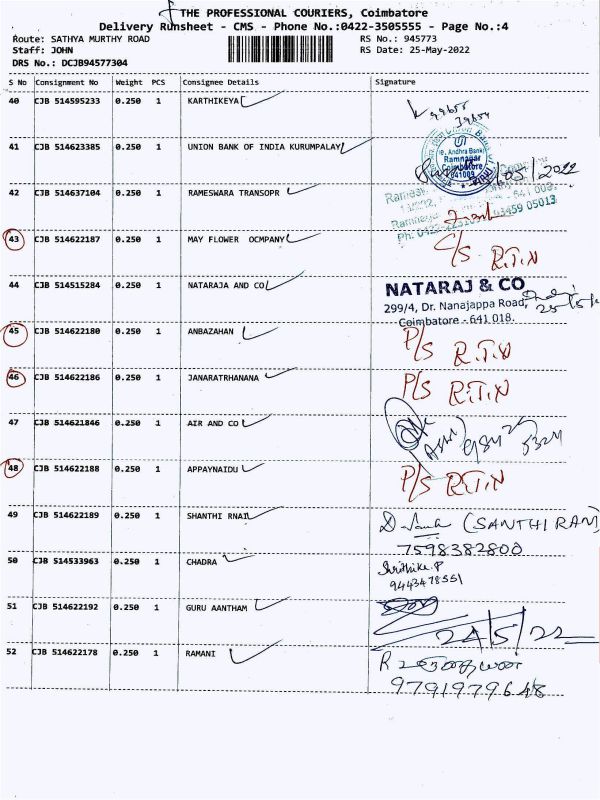 THE PROFESSIONAL COURIERS, Coimbatore
Delivery Runsheet - CMS - Phone No.:0422-3505555 - Page No.:4
Route: SATHYA MURTHY ROAD RS No.: 945773
Staff: JOHN RS Date: 25-May-2022
DRS No.: DCJB94577304
S No Consignment No Weight PCS Consignee Details Signature
40 CJB 514595233 0.250 1 KARTHIKEYA
41 CJB 514623385 0.250 1 UNION BANK OF INDIA KURUMPALAY
Andhra Bank
Ramnagar
Coimbatore
641009
42 CJB 514637104 0.250 1 RAMESWARA TRANSOPR
43 CJB 514622187 0.250 1 MAY FLOWER OCMPANY C/S R.T.N
44 CJB 514515284 0.250 1 NATARAJA AND CO NATARAJ & CO
299/4, Dr. Nanajappa Road,
Coimbatore - 641 018.
45 CJB 514622180 0.250 1 ANBAZAHAN P/S R.T.N
46 CJB 514622186 0.250 1 JANARATRHANANA P/S R.T.N
47 CJB 514621846 0.250 1 AIR AND CO
48 CJB 514622188 0.250 1 APPAYNAIDU P/S R.T.N
49 CJB 514622189 0.250 1 SHANTHI RNAI (SANTHI RAM)
7598382800
50 CJB 514533963 0.250 1 CHADRA Shrithike.P
9443478551
51 CJB 514622192 0.250 1 GURU AANTHAM
24/5/22
52 CJB 514622178 0.250 1 RAMANI
9791979648